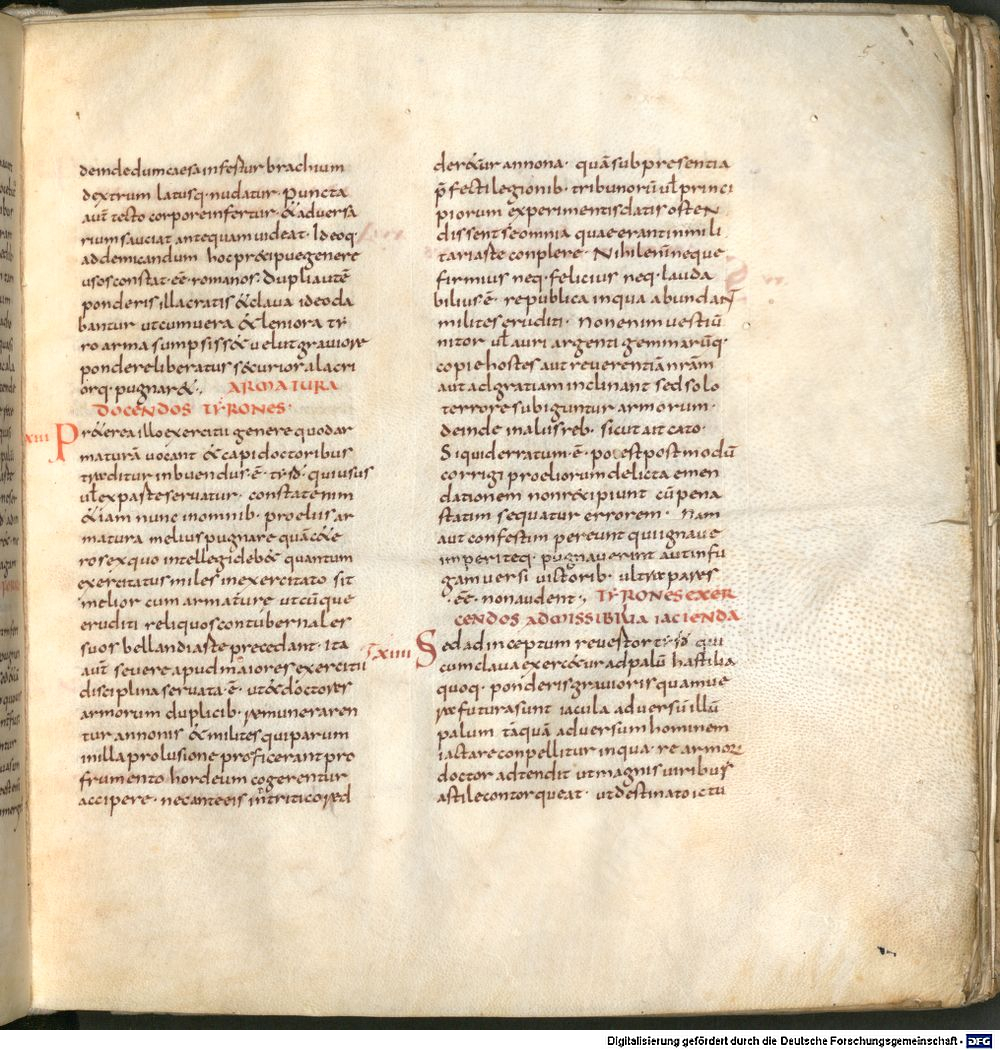 deindedumcaesa infestur brachium
dextrum latusq· nudatur· Puncta
aut̄ tecto corpore infertur· & adversa
rium sauciat antequam uideat· Ideoq·
ad demicandum hoc pr&cipue genere
usos constat· eē· romanos· Dupli autē
ponderis illa cratis & claua ideo da
bantur ut cum uera & leuiora ty
ro arma sumpsiss& uelut grauiore
pondere liberatus s&curior alacri
orq· pugnar&· ARMATURA
DOCENDOS TYRONES·
XIII Pr&erea illo exercitii genere quod ar
maturā uocant & capidoctoribus
traditur inbuendus· ē· tyrō· qui usus
ul̄ ex parte seruatur· constat enim
&iam nunc in omnib· proeliis ar
matura melius pugnare quā c&e
ros ex quo intellegi deb& quantum
exercitatus miles inexercitato sit
melior cum armature utcūque
eruditi reliquos contubernaler
suos bellandi aste precedant· ita
aut̄ seuere apud maiores exercitii
disciplina seruata· ē· ut & doctores
armorum duplicib· remuneraren
tur annonis & milites qui parum
in illa prolusione proficerant pro
frumento hordeum cogerentur
accipere· nec ante eis in tritico red
der&ur annona· quā sub presentia
p̄fecti legionib· tribunorū ul̄ princi
piorum experimentis datis osten
dissent se omnia quae erant in mili
tari aste conplere· Nihil enī neque
firmius neq· felicius neq· lauda
bilius· ē· republica in qua abundant
milites eruditi· Non enim uestiū
nitor ul̄ auri argenti gemmarūq·
copie hostes aut reuerentiā nr̄am
aut ad gratiam inclinant sed solo
terrore subiguntur armorum·
deinde in aliis reb· sicut ait cato·
Siquid erratum· ē· potest postmodū
corrigi proeliorum delicta emen
dationem non r&cipiunt cū pena
statim sequatur errorem· Nam
aut confestim pereunt qui ignaue
imperiteq· pugnauerint aut in fu
gam uersi uictorib· ultra pares
·eē· non audent· TYRONES EXER
CENDOS AD MISSIBILIA IACIENDA
XIIII Sed ad inceptum reuestor tyrō qui
cum claua exerc&ur ad palū hastilia
quoq· ponderis grauioris quam ue
re futura sunt iacula aduersū illū
palum tāquā aduersum hominem
iactare conpellitur in qua re armor
doctor adtendit ut magnis uiribus
astile contorqueat· ut destinato ictu
Digitalisierung gefördert durch die Deutsche Forschungsgemeinschaft - DFG